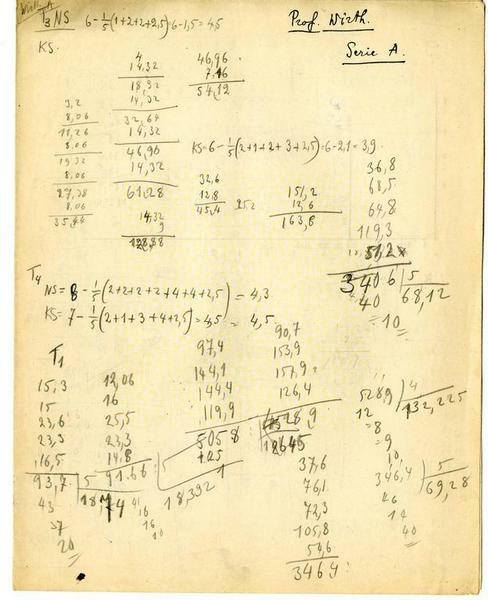 T3 NS 6-1/5(1+2+2+2,5)=6-1,5=4,5
Prof. Wirth.
KS.
Serie A.
4
14,32
18,32
14,32
32,64
14,32
46,96
14,32
61,28
14,32
9
46,96
7.16
54,12
3,2
8,06
11,26
8.06
19 32
8,06
27,38
8,06
35,46
KS=6-1/5(2+1+2+3+2,5)=6-2,1=3,9
32,6
12,8
45,4
252
151,2
12,6
163,8
36,8
68,5
64,8
119,3
51,2
3406 | 5
40 68,12
10
T4
NS= 8 - 1/5(2+2+2+2+4+4+2,5) = 4,3
KS= 7 - 1/5(2+1+3+4+2,5) = 4,5 = 4,5
T1
15,3
15
23,6
23,3
16,5
93,7 | 5
43 18,74
37
20
12,06
16
25,5
23,3
14.8
91.66 | 5
41 18,392
16
16
10
97,4
144,1
144,4
119,9
505 8
125
90,7
153,9
157,9
126,4
528 9
12645
5289 | 4
12 132,225
8
9
10
37,6
76,1
72,3
105,8
54,6
346 4
346,4 | 5
46 69,28
14
40